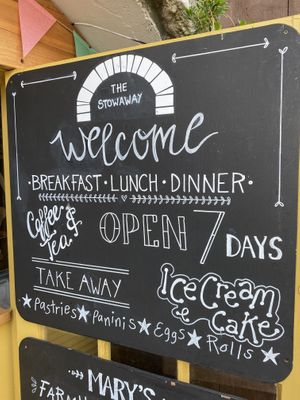 THE
STOWAWAY
Welcome
·BREAKFAST·LUNCH·DINNER·
Coffee &
Tea.
OPEN 7 DAYS
TAKE AWAY
Ice Cream
& Cake
☆Pastries☆Paninis☆Eggs☆Rolls☆
MARY'S